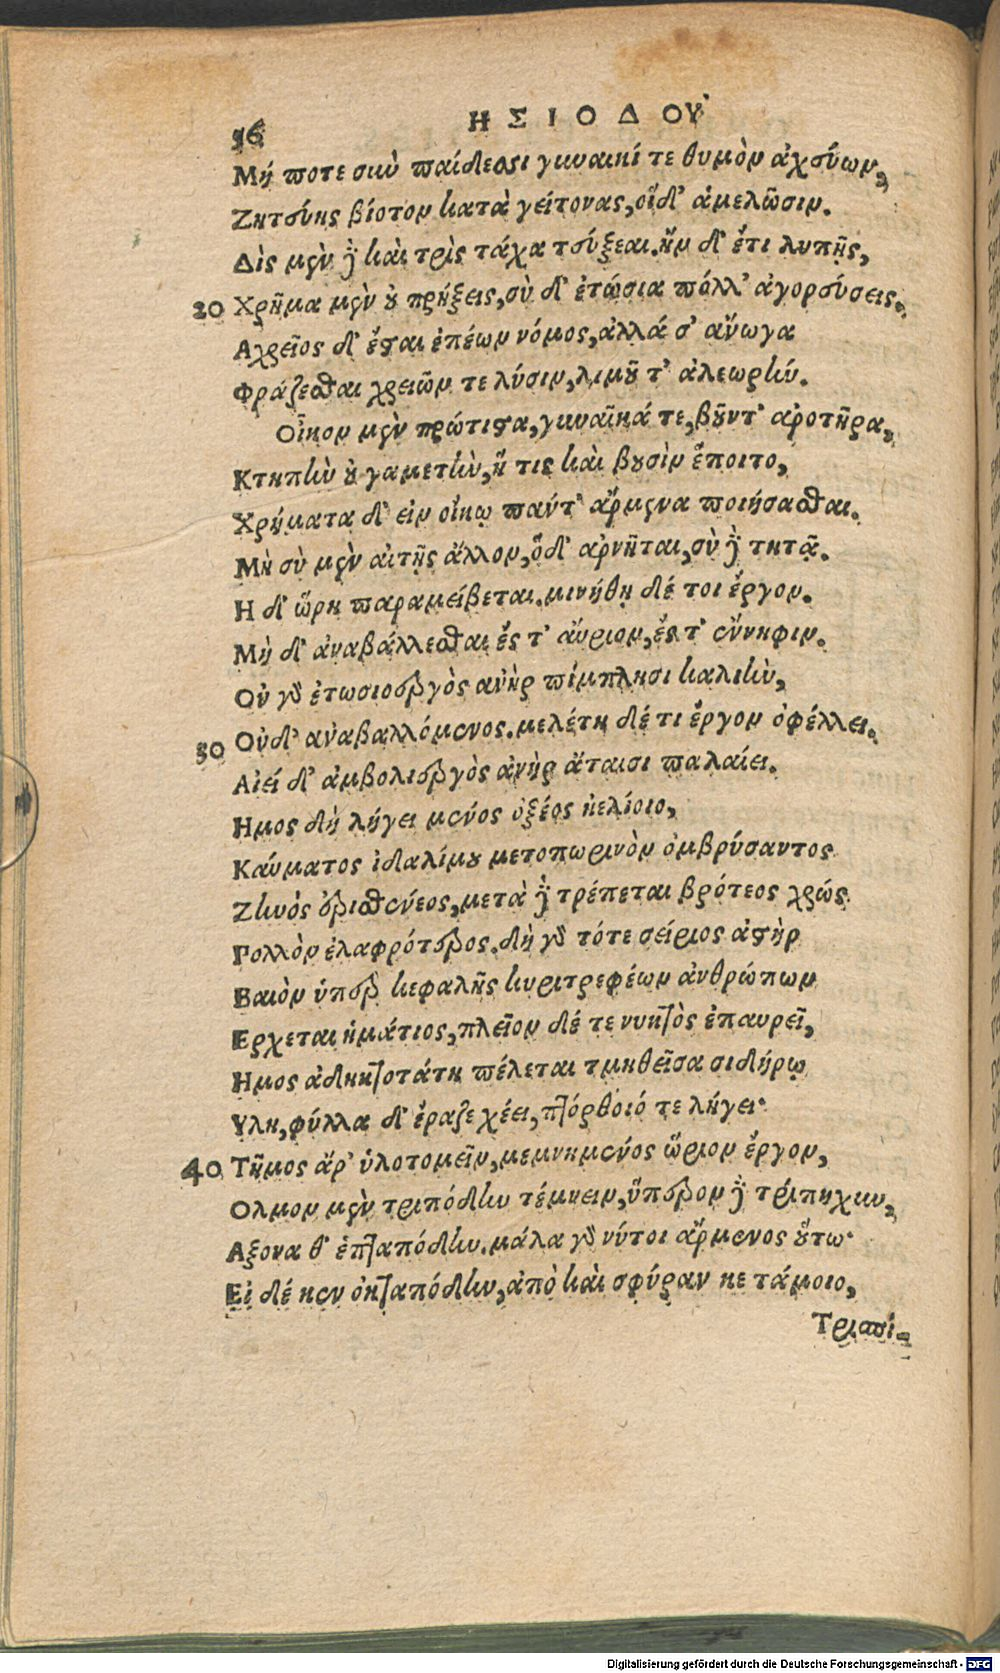 56
ΗΣΙΟΔΟΥ
Μή ποτε σὺν παίδεσσι γυναικί τε θυμὸν ἀχεύων,
Ζητεύῃς βίοτον κατὰ γείτονας, οἵδ' ἀμελῶσιν.
Δὶς μὲν γὰρ καὶ τρὶς τάχα τεύξεαι. ἢν δ' ἔτι λυπῇς,
20 Χρῆμα μὲν οὐ πρήξεις, σὺ δ' ἐτώσια πόλλ' ἀγορεύσεις.
Αχρεῖος δ' ἔσται ἐπέων νόμος, ἀλλά σ' ἄνωγα
Φράζεσθαι χρειῶν τε λύσιν, λιμοῦ τ' ἀλεωρήν.
Οἶκον μὲν πρώτιστα, γυναῖκά τε, βοῦντ' ἀροτῆρα,
Κτητὴν οὐ γαμετὴν, ἥ τις καὶ βουσὶν ἕποιτο,
Χρήματα δ' εἰν οἴκῳ πάντ' ἄρμενα ποιήσασθαι.
Μὴ σὺ μὲν αἰτῇς ἄλλον, ὅδ' ἀρνῆται, σὺ δὲ τητᾷ.
Η δ' ὥρη παραμείβεται. μινήθῃ δέ τοι ἔργον.
Μή δ' ἀναβάλλεσθαι ἔς τ' αὔριον, ἔς τ' ἔννηφιν.
Οὐ γὰρ ἐτωσιοεργὸς ἀνὴρ πίμπλησι καλιὴν,
30 Οὐδ' ἀναβαλλόμενος. μελέτη δέ τι ἔργον ὀφέλλει.
Αἰεί δ' ἀμβολιεργὸς ἀνὴρ ἄταισι παλαίει.
Ημος δὴ λήγει μένος ὀξέος ἠελίοιο,
Καύματος ἰδαλίμου μετοπωρινὸν ὀμβρύσαντος
Ζηνὸς ἐρισθενέος, μετὰ δὲ τρέπεται βρότεος χρώς
Πολλὸν ἐλαφρότερος. δὴ γὰρ τότε σείριος ἀστὴρ
Βαιὸν ὑπὲρ κεφαλῆς κυριτρεφέων ἀνθρώπων
Ερχεται ἠμάτιος, πλεῖον δέ τε νυκτὸς ἐπαυρεῖ,
Ημος ἀδηκτοτάτη πέλεται τμηθεῖσα σιδήρῳ
Υλη, φύλλα δ' ἔραζε χέει, πτόρθοιό τε λήγει·
40 Τῆμος ἄρ' ὑλοτομεῖν, μεμνημένος ὥριον ἔργον,
Ολμον μὲν τριπόδην τέμνειν, ὕπερον δὲ τρίπηχυν,
Αξονα θ' ἑπταπόδην. μάλα γὰρ νύτοι ἄρμενος οὕτω·
Εἰ δέ κεν ὀκταπόδην, ἀπὸ καὶ σφύραν κε τάμοιο,
Τρισπί-
Digitalisierung gefördert durch die Deutsche Forschungsgemeinschaft - DFG